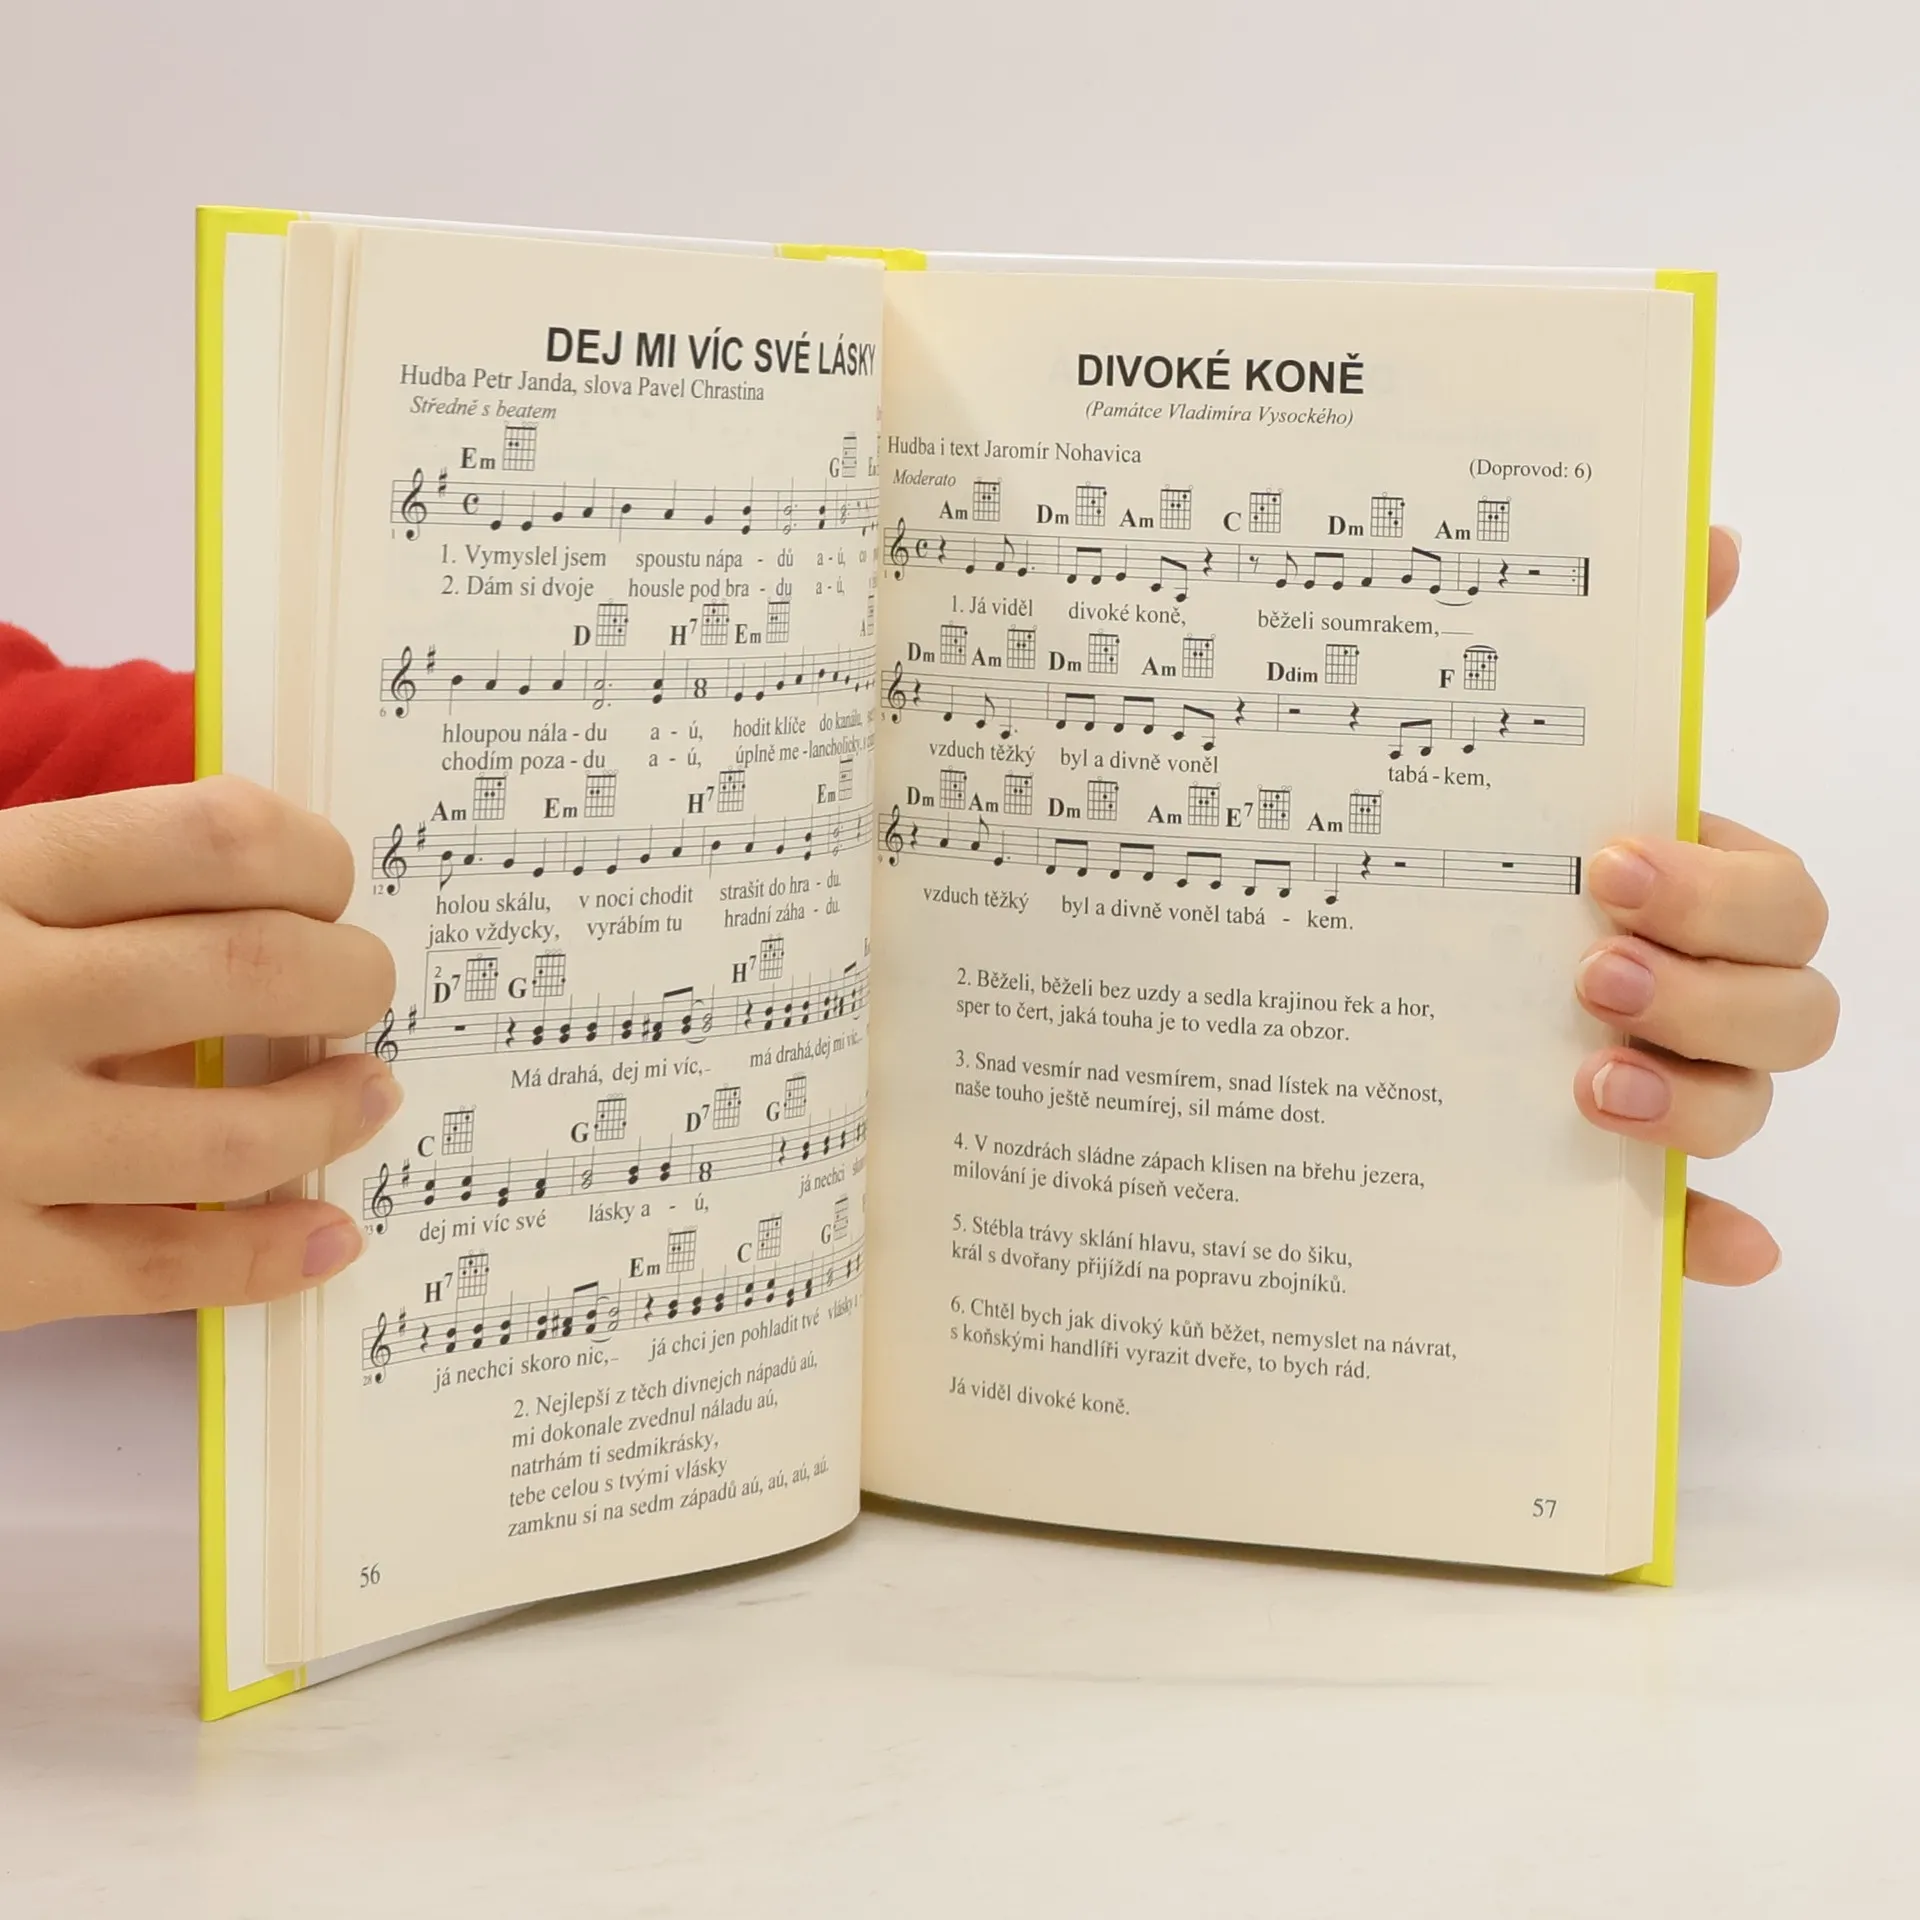 DEJ MI VÍC SVÉ LÁSKY
Hudba Petr Janda, slova Pavel Chrastina
Středně s beatem
Em G
1. Vymyslel jsem spoustu nápa - dů a - ú,
2. Dám si dvoje housle pod bra - du a - ú,
D H7 Em
6
hloupou nála - du a - ú, hodit klíče do kanálu,
chodím poza - du a - ú, úplně me - lancholicky.
Am Em H7 Em
12
holou skálu, v noci chodit strašit do hra - du.
jako vždycky, vyrábím tu hradní záha - du.
2
D7 G H7
Má drahá, dej mi víc, má drahá, dej mi víc
C G D7 G
23
dej mi víc své lásky a - ú, já nechci
H7 Em C G
28
já nechci skoro nic, já chci jen pohladit tvé vlásky
2. Nejlepší z těch divnejch nápadů aú,
mi dokonale zvednul náladu aú,
natrhám ti sedmikrásky,
tebe celou s tvými vlásky
zamknu si na sedm západů aú, aú, aú, aú.
56
DIVOKÉ KONĚ
(Památce Vladimíra Vysockého)
Hudba i text Jaromír Nohavica
(Doprovod: 6)
Moderato
Am Dm Am C Dm Am
1. Já viděl divoké koně, běželi soumrakem,
Dm Am Dm Am Ddim F
vzduch těžký byl a divně voněl tabá - kem,
Dm Am Dm Am E7 Am
vzduch těžký byl a divně voněl tabá - kem.
2. Běželi, běželi bez uzdy a sedla krajinou řek a hor,
sper to čert, jaká touha je to vedla za obzor.
3. Snad vesmír nad vesmírem, snad lístek na věčnost,
naše touho ještě neumírej, sil máme dost.
4. V nozdrách sládne zápach klisen na břehu jezera,
milování je divoká píseň večera.
5. Stébla trávy sklání hlavu, staví se do šiku,
král s dvořany přijíždí na popravu zbojníků.
6. Chtěl bych jak divoký kůň běžet, nemyslet na návrat,
s koňskými handlíři vyrazit dveře, to bych rád.
Já viděl divoké koně.
57